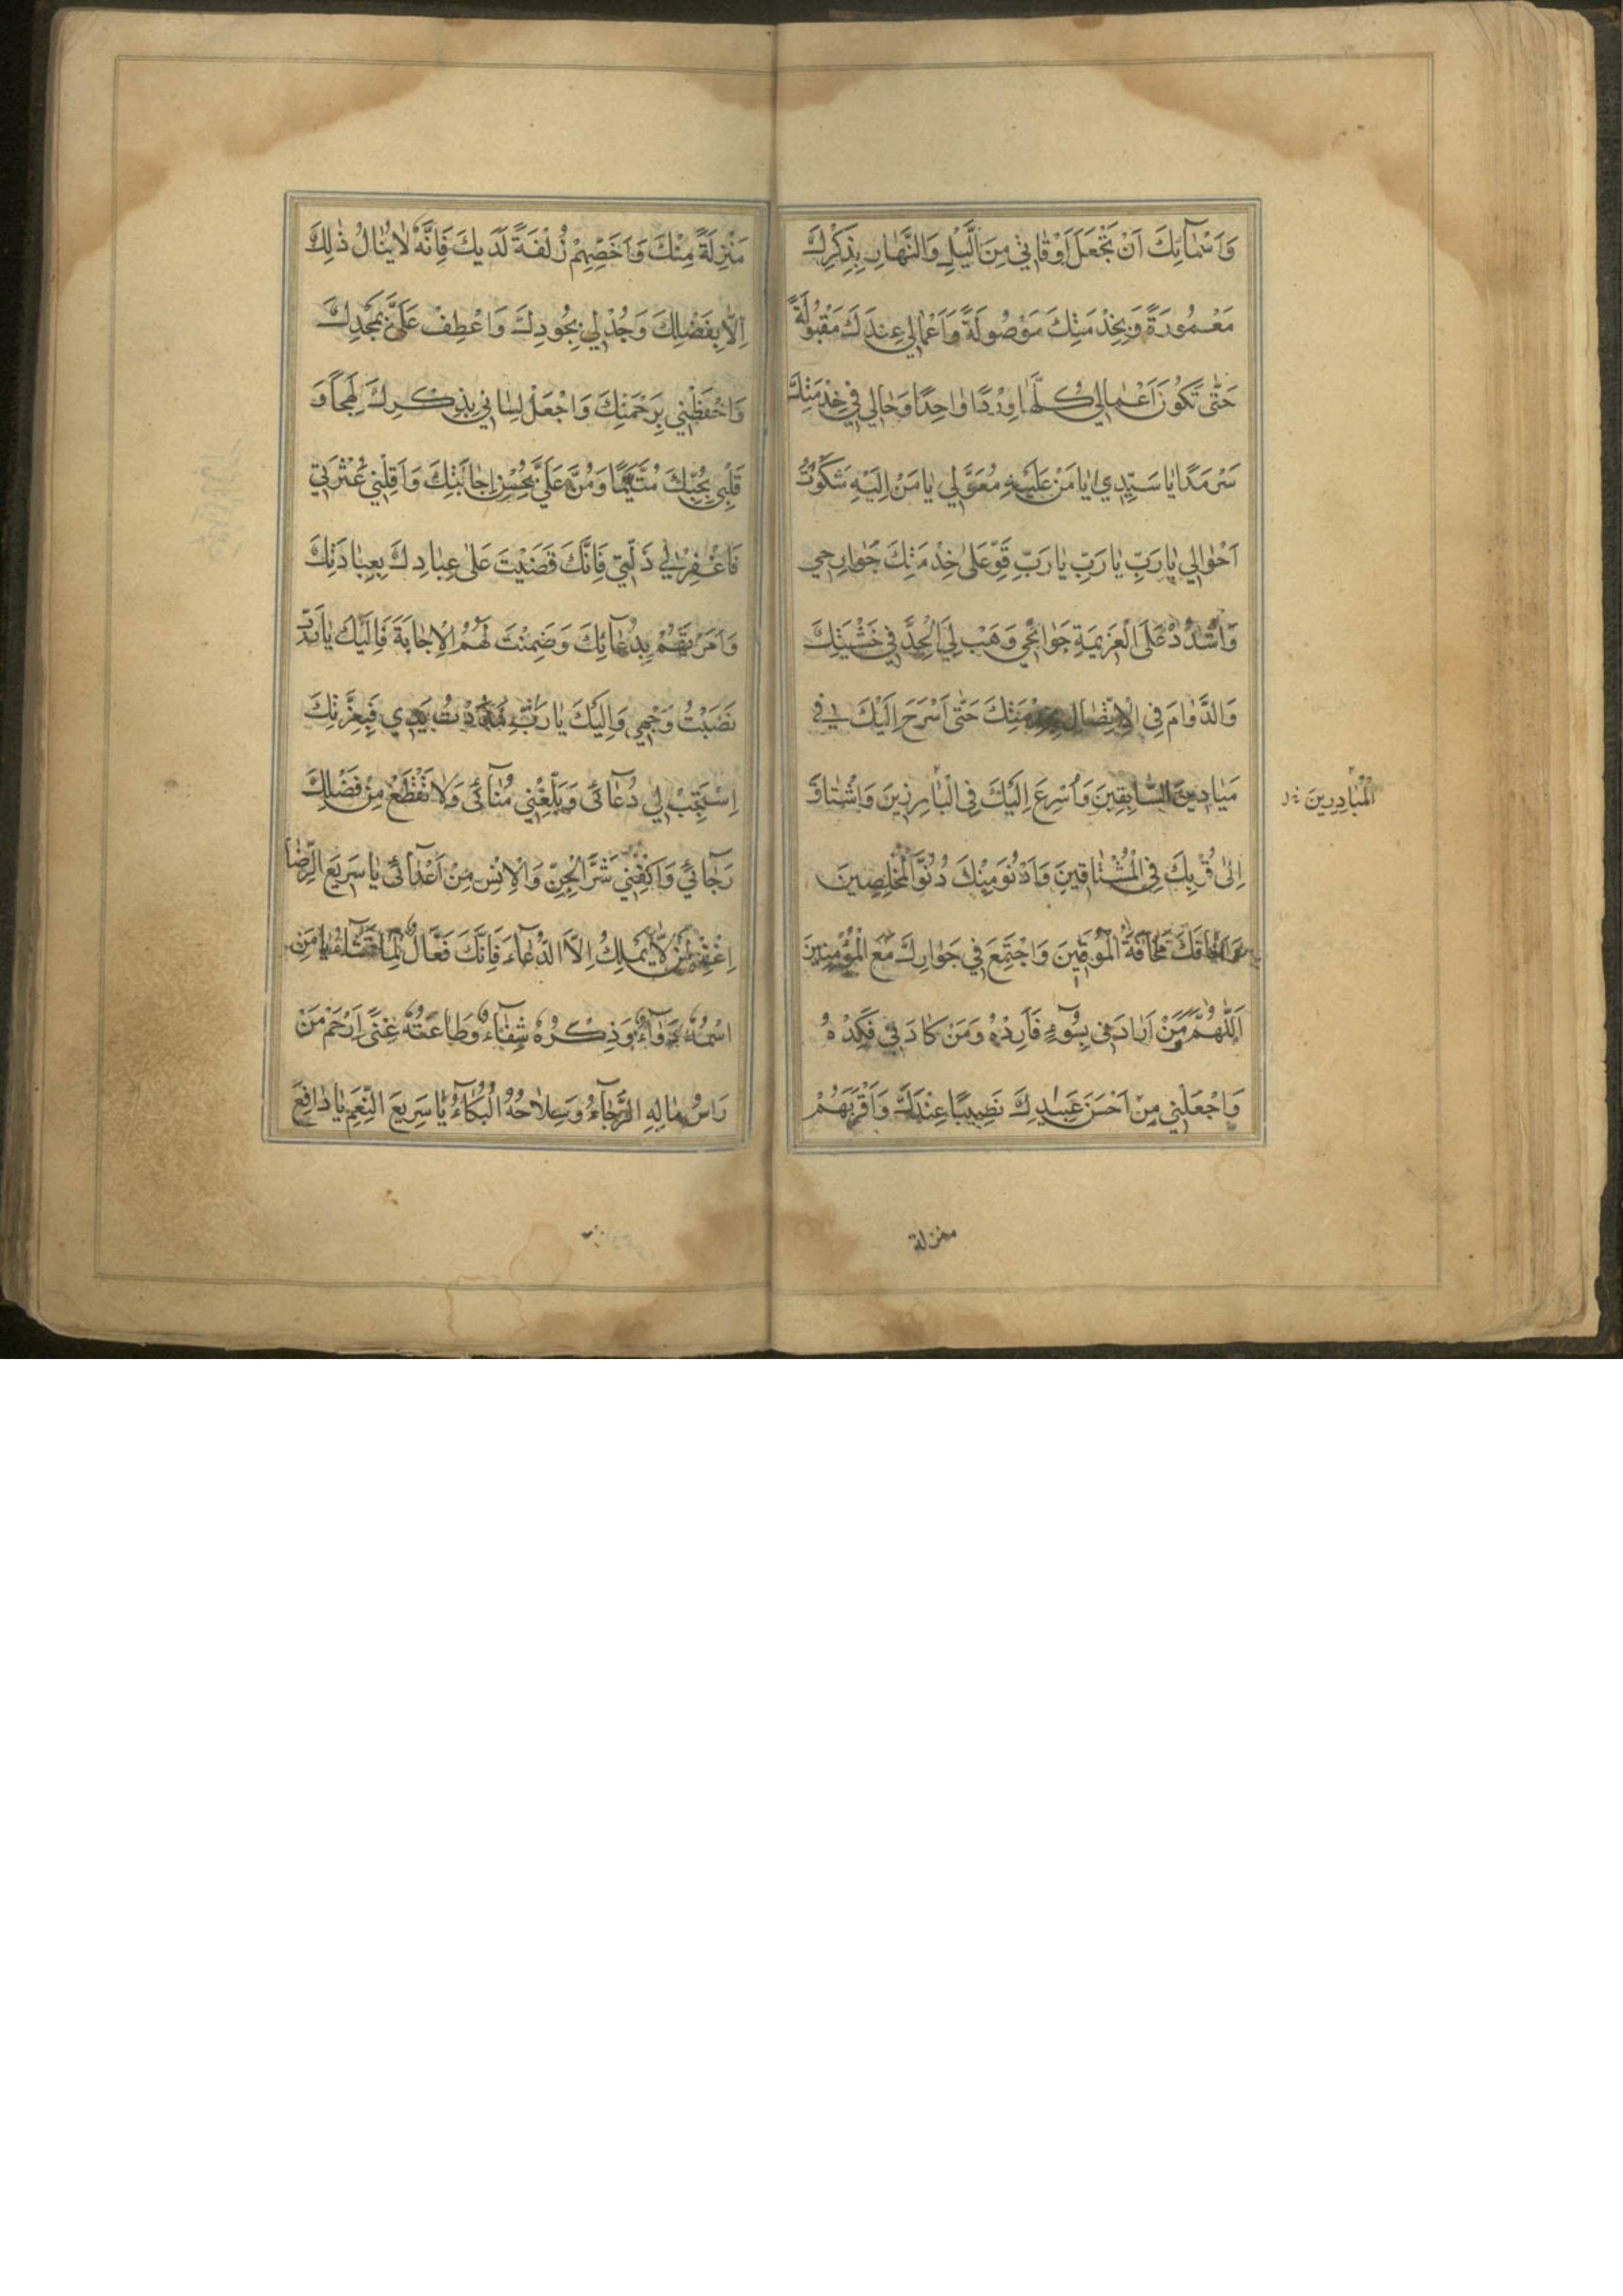 وَاَسْمآئِكَ اَنْ تَجْعَلَ اَوْقاتي مِنَ الَّليْلِ وَالنَّهارِ بِذِكْرِكَ
مَعْمُورَةً وَبِخِدْمَتِكَ مَوْصُولَةً وَاَعْمالي عِنْدَكَ مَقْبُولَةً
حَتّى تَكُونَ اَعْمالي كُلُّها وِرْدًا واحِدًا وَحالي في خِدْمَتِكَ
سَرْمَدًا يا سَيِّدي يا مَنْ عَلَيْهِ مُعَوَّلي يا مَنْ اِلَيْهِ شَكَوْتُ
اَحْوالي يا رَبِّ يا رَبِّ يا رَبِّ قَوِّ عَلى خِدْمَتِكَ جَوارِحي
وَاشْدُدْ عَلَى الْعَزيمَةِ جَوانِحي وَهَبْ لِيَ الْجِدَّ في خَشْيَتِكَ
وَالدَّوامَ فِى الْاِتِّصالِ بِخِدْمَتِكَ حَتّى اَسْرَحَ اِلَيْكَ في
مَيادينِ السّابِقينَ وَاُسْرِعَ اِلَيْكَ فِى الْبارِزينَ وَاَشْتاقَ
الْمُبادِرينَ
اِلى قُرْبِكَ فِى الْمُشْتاقينَ وَاَدْنُوَ مِنْكَ دُنُوَّ الْمُخْلِصينَ
وَاَخافَكَ مَخافَةَ الْمُوقِنينَ وَاَجْتَمِعَ في جَوارِكَ مَعَ الْمُؤْمِنينَ
اَللّهُمَّ وَمَنْ اَرادَنى بِسُوۤءٍ فَاَرِدْهُ وَمَنْ كادَني فَكِدْهُ
وَاجْعَلْني مِنْ اَحْسَنِ عَبيدِكَ نَصيبًا عِنْدَكَ وَاَقْرَبِهُمْ
منزلة
مَنْزِلَةً مِنْكَ وَاَخَصِّهِمْ زُلْفَةً لَدَيْكَ فَاِنَّهُ لا يُنالُ ذلِكَ
اِلاّ بِفَضْلِكَ وَجُدْ لي بِجُودِكَ وَاعْطِفْ عَلَىَّ بِمَجْدِكَ
وَاحْفَظْني بِرَحْمَتِكَ وَاجْعَلْ لِساني بِذِكْرِكَ لَهِجًا وَ
قَلْبي بِحُبِّكَ مُتَيَّمًا وَمُنَّ عَلَىَّ بِحُسْنِ اِجابَتِكَ وَاَقِلْني عَثْرَتي
فَاغْفِرْ لي ذَلَّتي فَاِنَّكَ قَضَيْتَ عَلى عِبادِكَ بِعِبادَتِكَ
وَاَمَرْتَهُمْ بِدُعآئِكَ وَضَمِنْتَ لَهُمُ الْاِجابَةَ فَاِلَيْكَ يا رَبِّ
نَصَبْتُ وَجْهي وَاِلَيْكَ يا رَبِّ مَدَدْتُ يَدي فَبِعِزَّتِكَ
اِسْتَجِبْ لي دُعآئى وَبَلِّغْني مُنآئى وَلا تَقْطَعْ مِنْ فَضْلِكَ
رَجآئي وَاكْفِني شَرَّ الْجِنِّ وَالْاِنْسِ مِنْ اَعْدآئى يا سَريعَ الرِّضا
اِغْفِرْ لِمَنْ لا يَمْلِكُ اِلَّا الدُّعآءَ فَاِنَّكَ فَعّالٌ لِما تَشآءُ يا مَنِ
اسْمُهُ دَوآءٌ وَذِكْرُهُ شِفآءٌ وَطاعَتُهُ غِنًى اِرْحَمْ مَنْ
رَاْسُ مالِهِ الرَّجآءُ وَسِلاحُهُ الْبُكآءُ يا سَريعَ النِّعَمِ يا دافِعَ